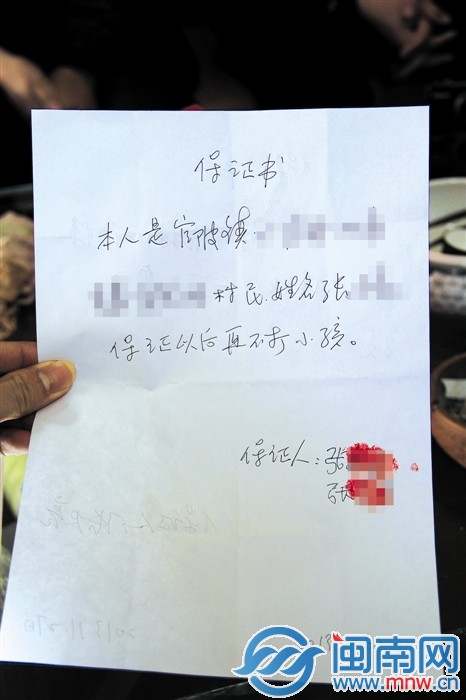 保证书
本人是官陂镇
村民.姓名张
保证以后再不打小孩。
保证人:张
张
闽南网
www.mnw.cn